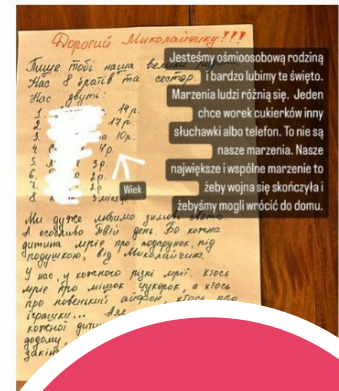 Дорогий Миколайчику!!!
Пише тобі наша вели
Нас 8 братів та сестер.
Нас звуть:
1. 14р.
2. 17р.
3. 10р.
4. 4р.
5. 3р.
6. 2р.
7. 2р
8.
Ми дуже любимо зимові свята
А особливо Твій день. Бо кожна
дитина мріє про подарунок, під
подушкою, від Миколайчика.
У нас, у кожного різні мрії. Хтось
мріє про мішок цукерок, а хтось
про новенький айфон, хтось про
іграшки...
кожної дити
додому.
закін
Jesteśmy ośmioosobową rodziną
i bardzo lubimy te święto.
Marzenia ludzi różnią się. Jeden
chce worek cukierków inny
słuchawki albo telefon. To nie są
nasze marzenia. Nasze
największe i wspólne marzenie to
żeby wojna się skończyła i
żebyśmy mogli wrócić do domu.
Wiek